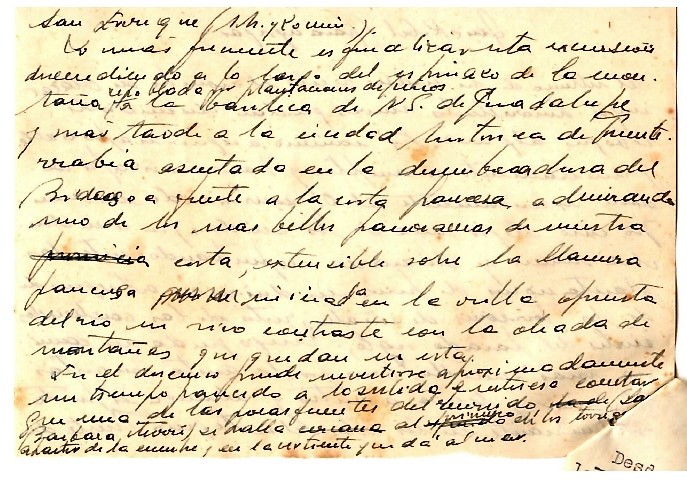 San Enrique (1 h. y 40 min.)
Lo más frecuente es finalizar esta excursión
descendiendo a lo largo del espinazo de la mon-
taña repoblada por plantaciones de pinos a la basílica de N. S. de Guadalupe
y más tarde a la ciudad histórica de Fuente-
rrabía asentada en la desembocadura del
Bidasoa frente a la costa francesa, admirando
uno de los más bellos panoramas de nuestra
provincia costa, extensible sobre la llanura
francesa iniciada en la orilla opuesta
del río en vivo contraste con la oleada de
montañas que quedan en esta.
En el descenso puede invertirse aproximadamente
un tiempo parecido a la subida e interesa constar
que una de las fuentes del recorrido
Bárbara se halla cercana al primero de los torreo
a partir de la cumbre, en la vertiente que da al mar.
Desd